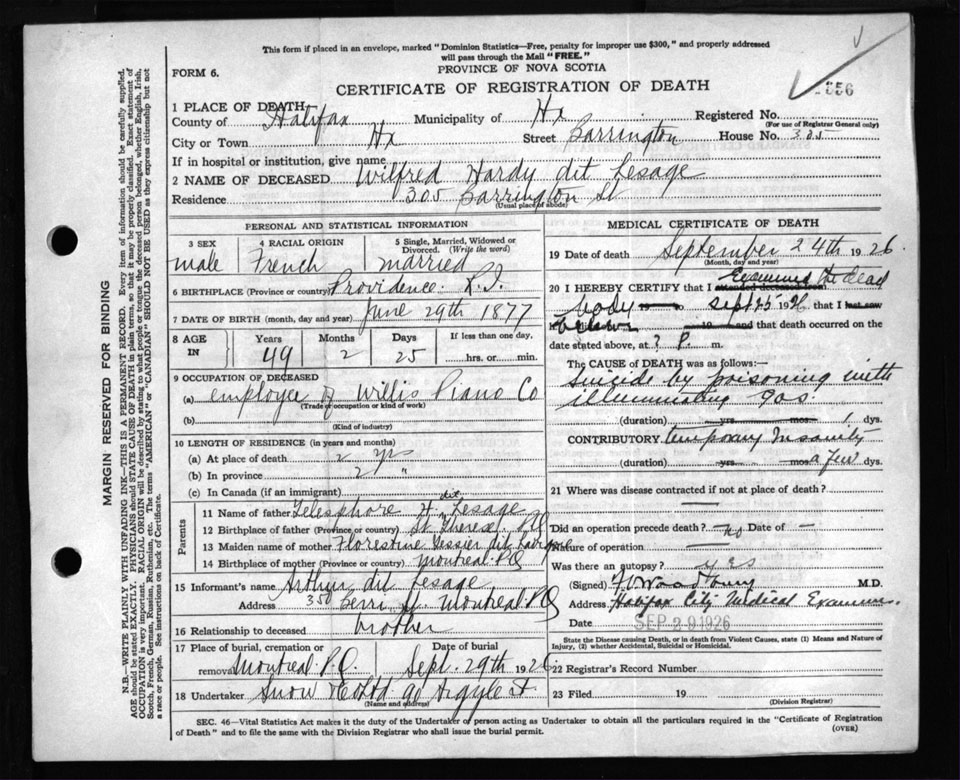 This form if placed in an envelope, marked "Dominion Statistics—Free, penalty for improper use $300," and properly addressed
will pass through the Mail "FREE."
PROVINCE OF NOVA SCOTIA
FORM 6.
CERTIFICATE OF REGISTRATION OF DEATH
1 PLACE OF DEATH
County of Halifax Municipality of Hx Registered No.
(For use of Registrar General only)
City or Town Hx Street Barrington House No. 305
If in hospital or institution, give name
2 NAME OF DECEASED Wilfred Hardy dit Lesage
Residence 305 Barrington St
(Usual place of abode)
MARGIN RESERVED FOR BINDING
N.B.—WRITE PLAINLY WITH UNFADING INK—THIS IS A PERMANENT RECORD. Every item of information should be carefully supplied.
AGE should be stated EXACTLY. PHYSICIANS should STATE CAUSE OF DEATH in plain terms, so that it may be properly classified. Exact statement of
OCCUPATION is very important. RACIAL ORIGIN will be described by stating to what people or tongue the deceased person belonged, whether English, Irish,
Scotch, French, German, Russian, Ruthenian, etc. The terms "AMERICAN" or "CANADIAN" SHOULD NOT BE USED as they express citizenship but not
a race or people. See instructions on back of Certificate.
PERSONAL AND STATISTICAL INFORMATION
3 SEX
male
4 RACIAL ORIGIN
French
5 Single, Married, Widowed or
Divorced. (Write the word)
married
6 BIRTHPLACE (Province or country) Providence. R.I.
7 DATE OF BIRTH (month, day and year) June 29th 1877
8 AGE
IN
Years
49
Months
2
Days
25
If less than one day,
hrs. or min.
9 OCCUPATION OF DECEASED
(a) employee of Willis Piano Co
(Trade or occupation or kind of work)
(b)
(Kind of industry)
10 LENGTH OF RESIDENCE (in years and months)
(a) At place of death 2 yrs
(b) In province 2 "
(c) In Canada (if an immigrant)
Parents
11 Name of father Telesphore H. dit Lesage
12 Birthplace of father (Province or country) St Therese. P.Q
13 Maiden name of mother Florestine Tessier dit
14 Birthplace of mother (Province or country) Montreal P.Q
15 Informant's name Arthur dit Lesage
Address 350 Berri St. Montreal P.Q
16 Relationship to deceased brother
17 Place of burial, cremation or Date of burial
removal Montreal P.Q. Sept. 29th 1926
18 Undertaker Snow & Co Ltd 90 Argyle St
(Name and address)
MEDICAL CERTIFICATE OF DEATH
19 Date of death September 24th 1926
(Month, day and year)
20 I HEREBY CERTIFY that I attended deceased from Examined the dead
body 19 to Sept 25 1926 that I last saw
19 and that death occurred on the
date stated above, at 3 P. m.
The CAUSE OF DEATH was as follows:
Suicide by poisoning with
illuminating gas.
(duration) yrs. mos. 1 dys.
CONTRIBUTORY temporary Insanity
(duration) yrs. mos. a few dys.
21 Where was disease contracted if not at place of death?
Did an operation precede death? no Date of
Nature of operation
Was there an autopsy? yes
(Signed) Woodbury M.D.
Address Halifax City Medical Examiner.
Date SEP 29 1926
State the Disease causing Death, or in death from Violent Causes, state (1) Means and Nature of
Injury, (2) whether Accidental, Suicidal or Homicidal.
22 Registrar's Record Number
23 Filed 19
(Division Registrar)
SEC. 46—Vital Statistics Act makes it the duty of the Undertaker or person acting as Undertaker to obtain all the particulars required in the "Certificate of Registration
of Death" and to file the same with the Division Registrar who shall issue the burial permit.
(OVER)